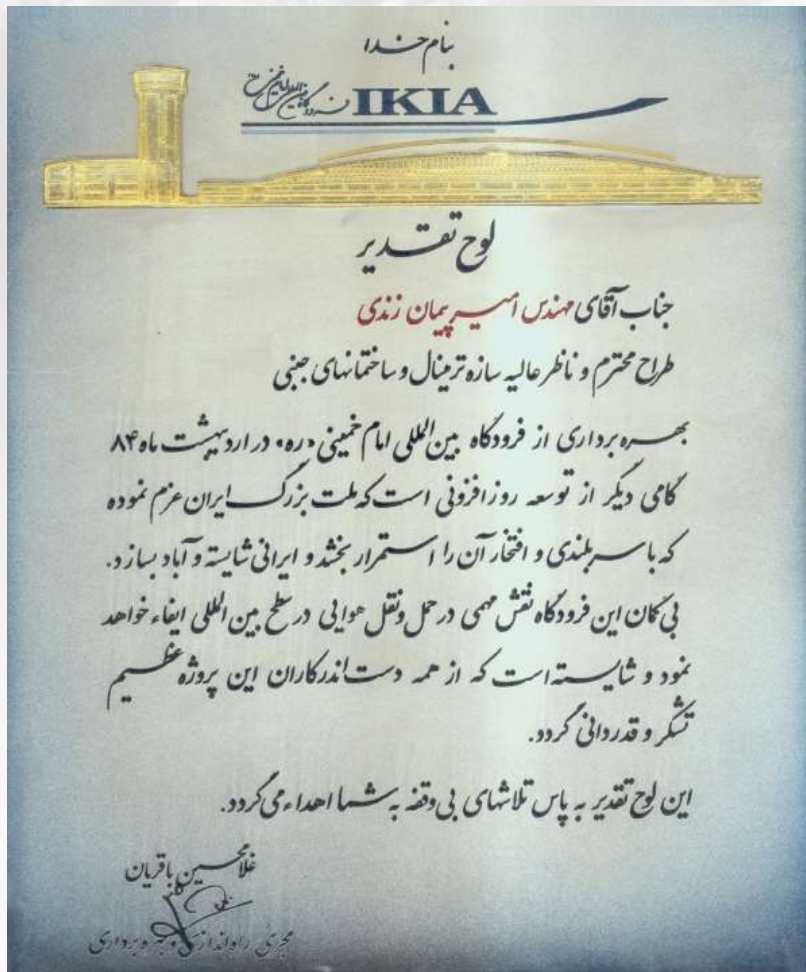 بنام خدا
فرودگاه بین المللی امام خمینی IKIA
لوح تقدیر
جناب آقای مهندس امیر پیمان زندی
طراح محترم و ناظر عالیه سازه ترمینال و ساختمانهای جنبی
بهره برداری از فرودگاه بین المللی امام خمینی «ره» در اردیبهشت ماه ۸۴
گامی دیگر از توسعه روز افزونی است که ملت بزرگ ایران عزم نموده
که با سربلندی و افتخار آن را استمرار بخشد و ایرانی شایسته و آباد بسازد.
بی گمان این فرودگاه نقش مهمی در حمل و نقل هوایی در سطح بین المللی ایفاء خواهد
نمود و شایسته است که از همه دست اندرکاران این پروژه عظیم
تشکر و قدردانی گردد.
این لوح تقدیر به پاس تلاشهای بی وقفه به شما اهداء می گردد.
غلامحسین باقریان
مجری راه اندازی و بهره برداری